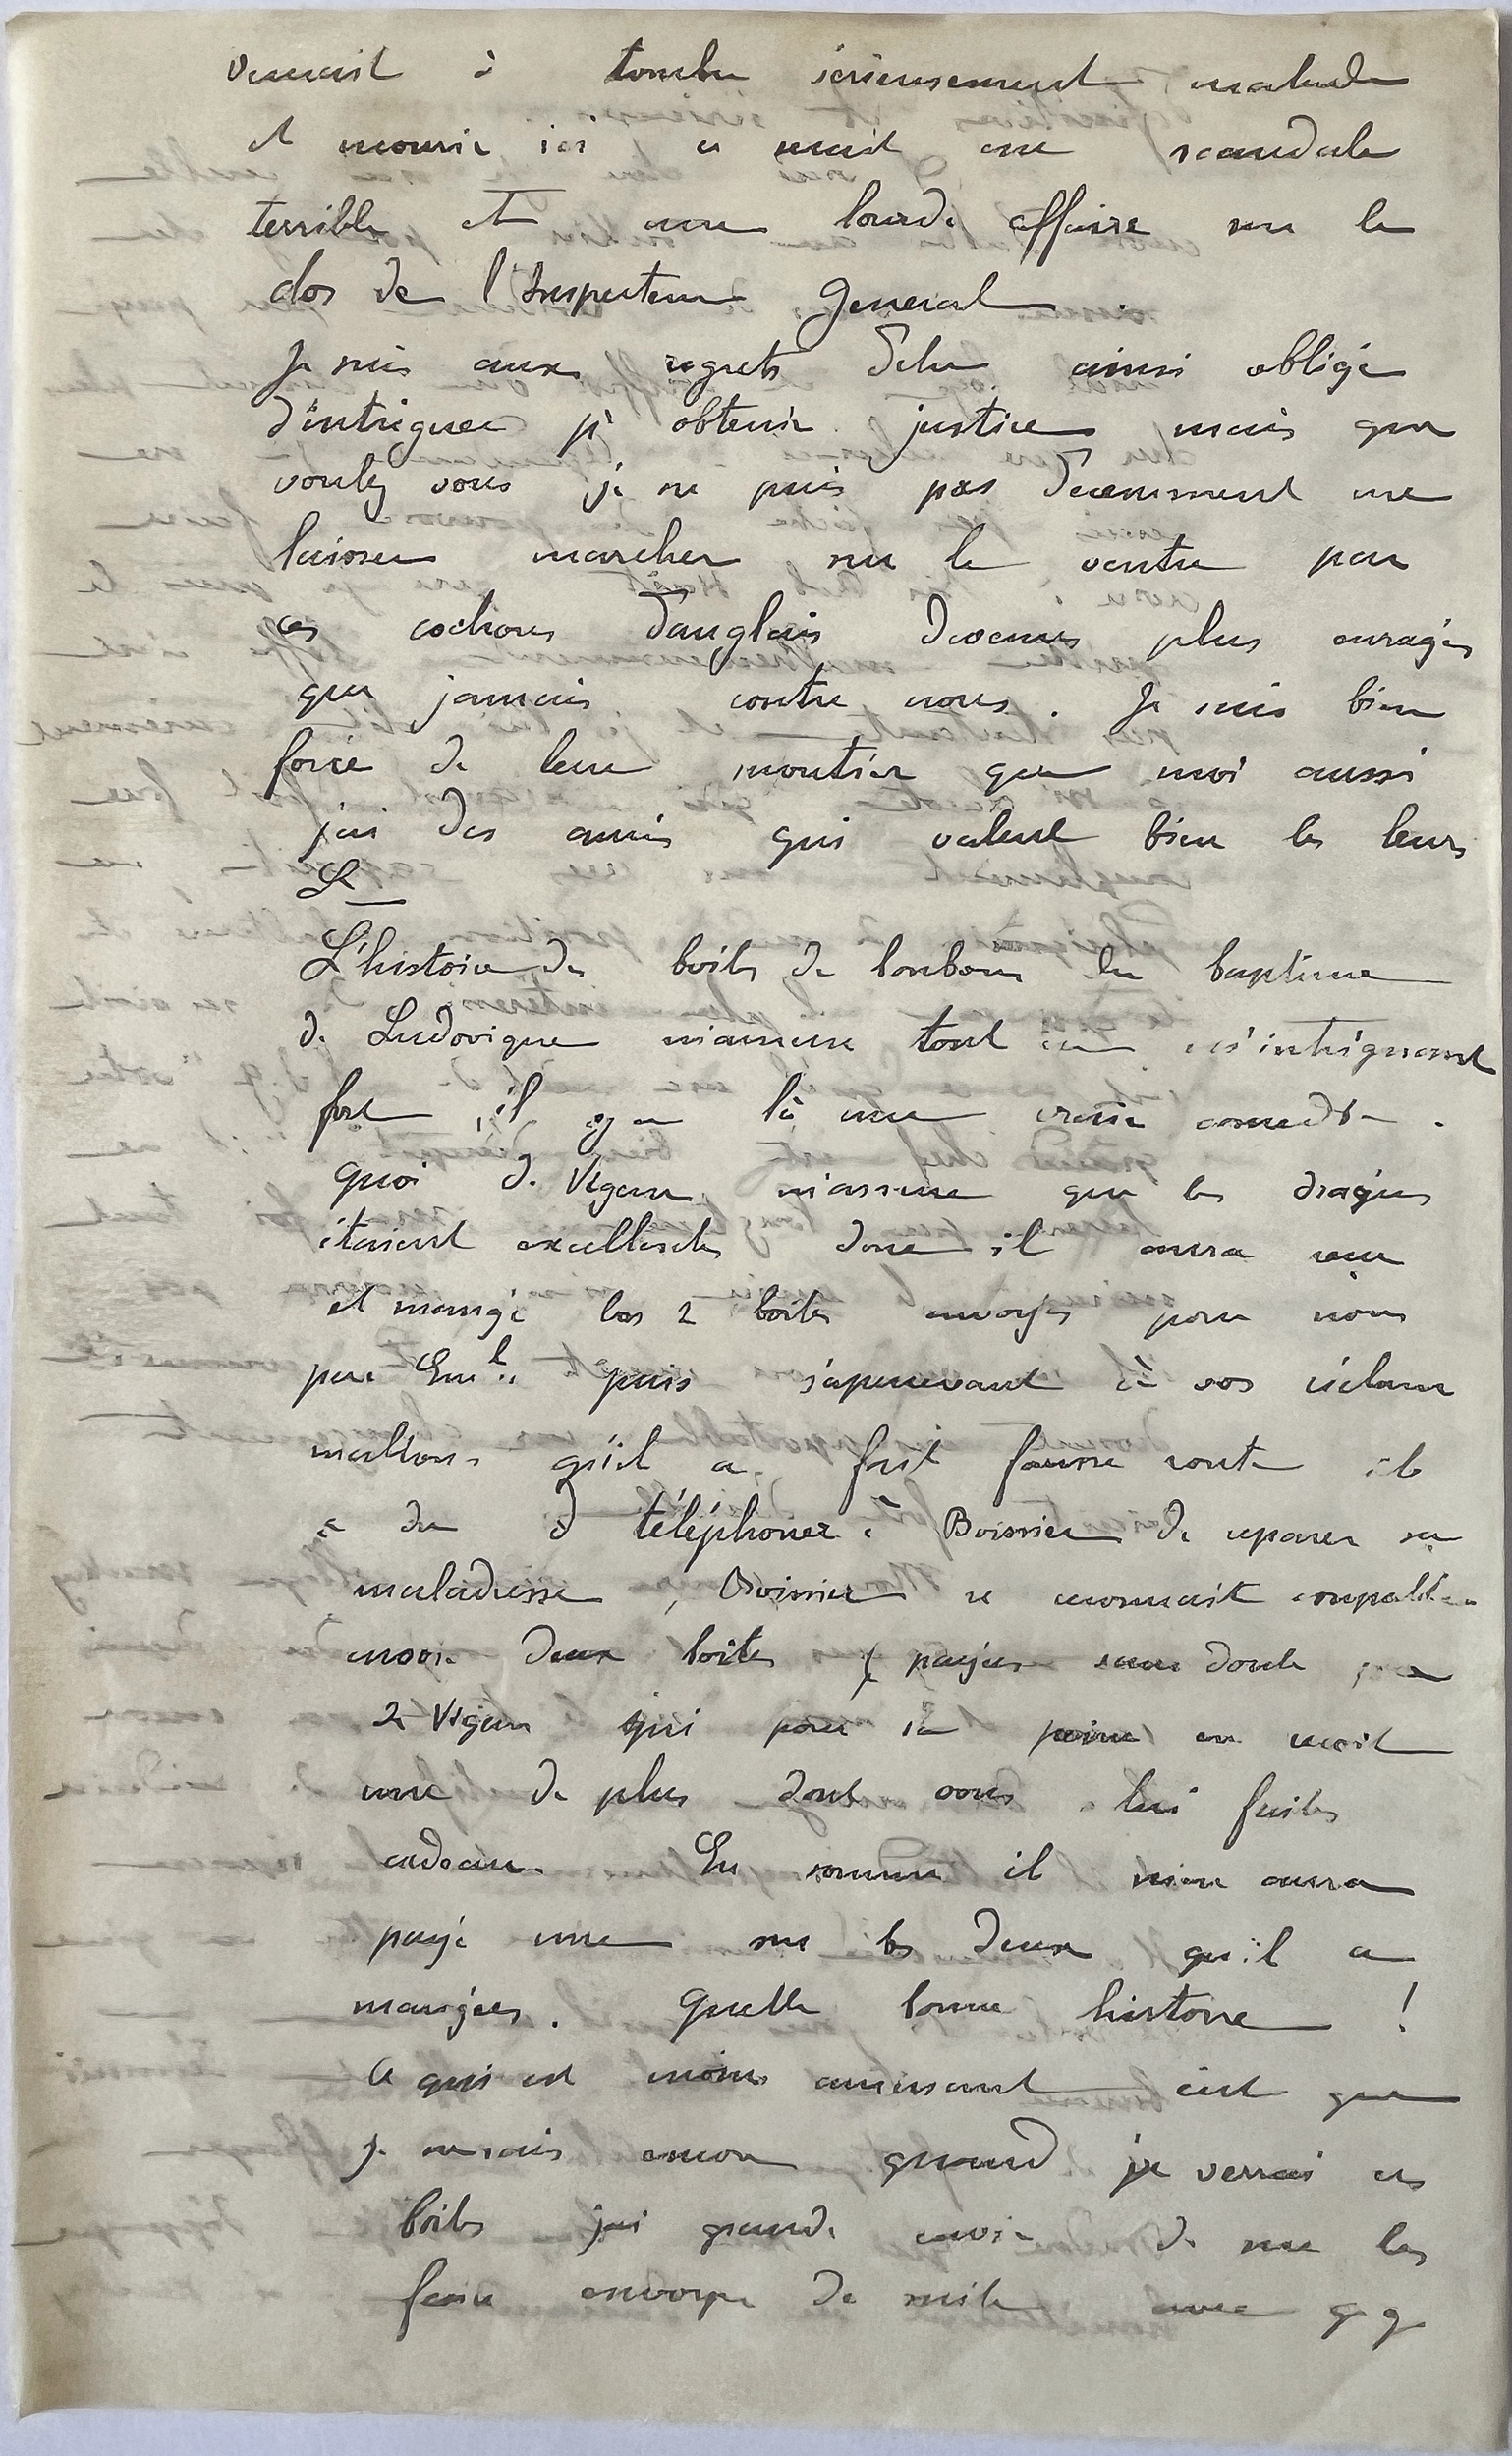 venait à tomber sérieusement malade
et mourir ici ce serait un scandale
terrible et une lourde affaire sur le
dos de l'Inspecteur General
Je suis aux regrets d'etre ainsi obligé
d'intriguer pr obtenir justice mais que
voulez vous je ne puis pas decemment me
laisser marcher sur le ventre par
ces cochons d'anglais devenus plus enragés
que jamais contre nous. Je suis bien
forcé de leur montrer que moi aussi
j'ai des amis qui valent bien les leurs
L
L'histoire des boites de bonbons du baptême
de Ludovique m'amuse tout en m'intriguant
fort, il y a là une vraie comedie.
quoi de Vigan m'assure que les dragées
étaient excellentes donc il aura reçu
et mangé les 2 boites envoyées pour nous
par Eml. puis s'apercevant à vos réclam
mations qu'il a fait fausse route il
a du téléphoner à Boissier de reparer sa
maladresse, Boissier se reconnait coupable
envoie deux boites payées sans doute par
de Vigan qui pour sa peine en reçoit
une de plus dont vous lui faites
cadeau. En somme il n'en aura
payé une sur les deux qu'il a
mangées. Quelle bonne histoire !
Ce qui est moins amusant c'est que
je ne sais encore quand je verrai ces
boites j'ai grande envie de me les
faire envoyer de suite avec qq